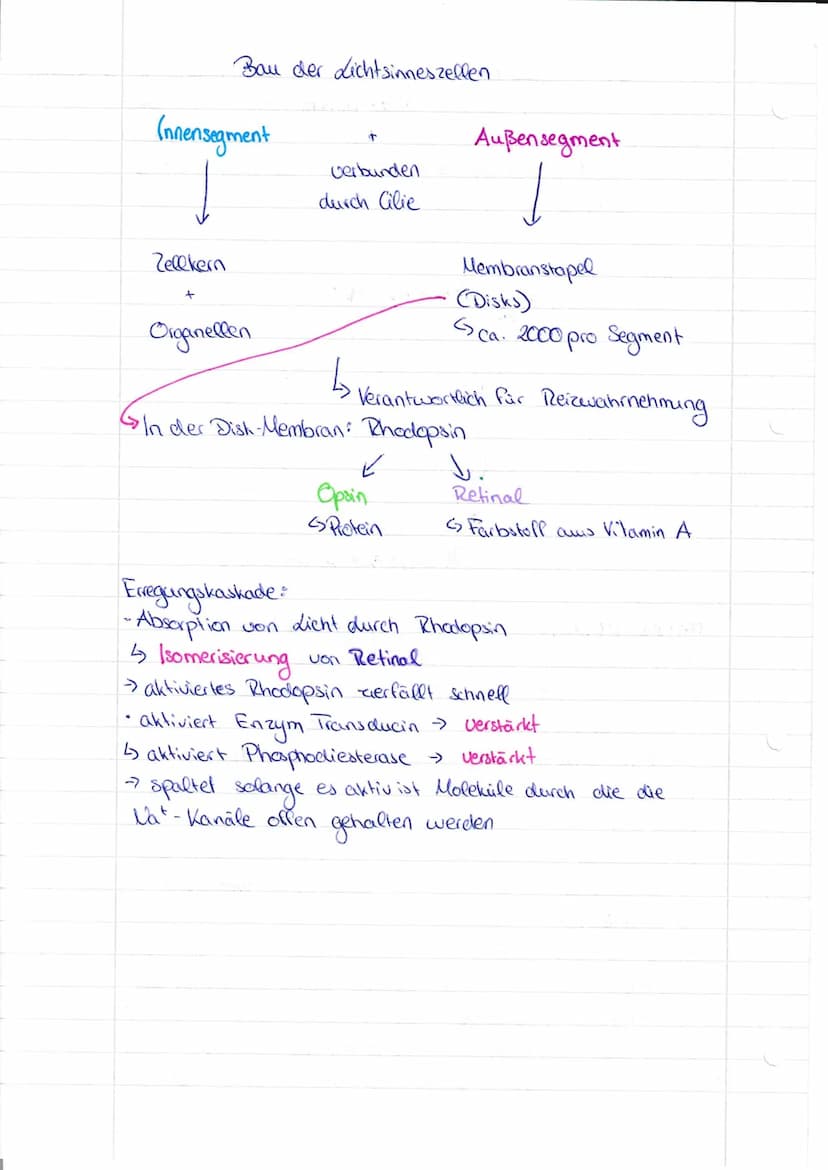 Bau der Lichtsinneszellen
Innensegment + Außensegment
verbunden
durch Cilie
Zellkern
+
Organellen
Membranstapel
(Disks)
↳ ca. 2000 pro Segment
↳ Verantwortlich für Reizwahrnehmung
↳ In der Disk-Membran: Rhodopsin
Opsin
↳ Protein
Retinal
↳ Farbstoff aus Vitamin A
Erregungskaskade:
- Absorption von Licht durch Rhodopsin
↳ Isomerisierung von Retinal
→ aktiviertes Rhodopsin zerfällt schnell
· aktiviert Enzym Transducin → verstärkt
↳ aktiviert Phosphodiesterase → verstärkt
→ spaltet solange es aktiv ist Moleküle durch die die
Na⁺-Kanäle offen gehalten werden